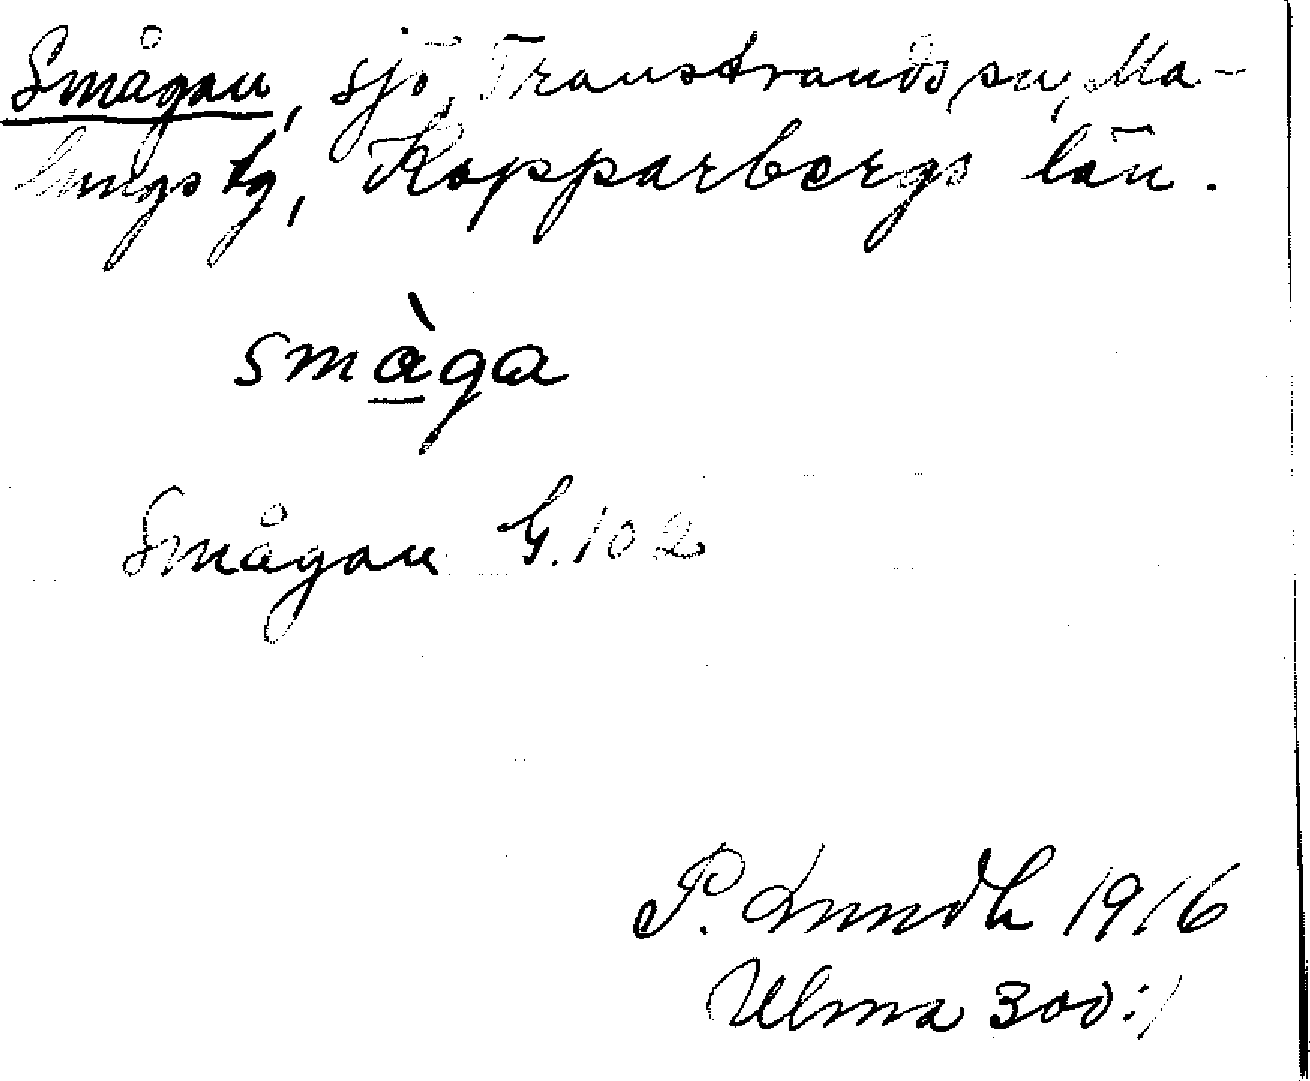 Smågan, sjö, Transtrands sn, Ma-
lungs tg, Kopparbergs län.
smàga
Smågan G. 102
P. Lundh 1916
Ulma 300:1